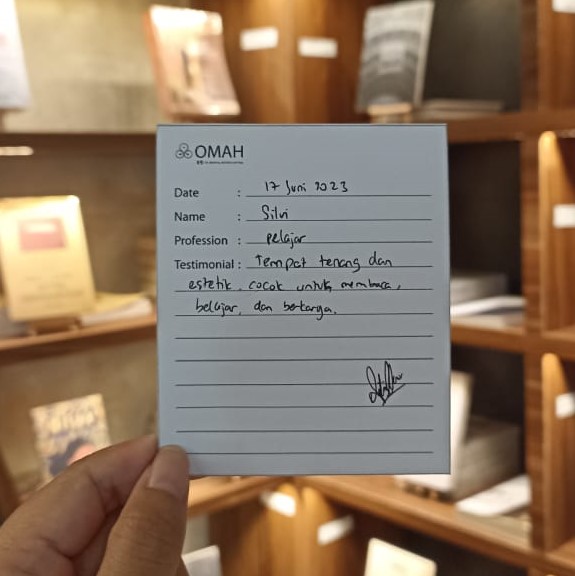 OMAH
Date : 17 Juni 2023
Name : Silvi
Profession : pelajar
Testimonial : Tempat tenang dan
estetik, cocok untuk membaca,
belajar, dan berkarya.